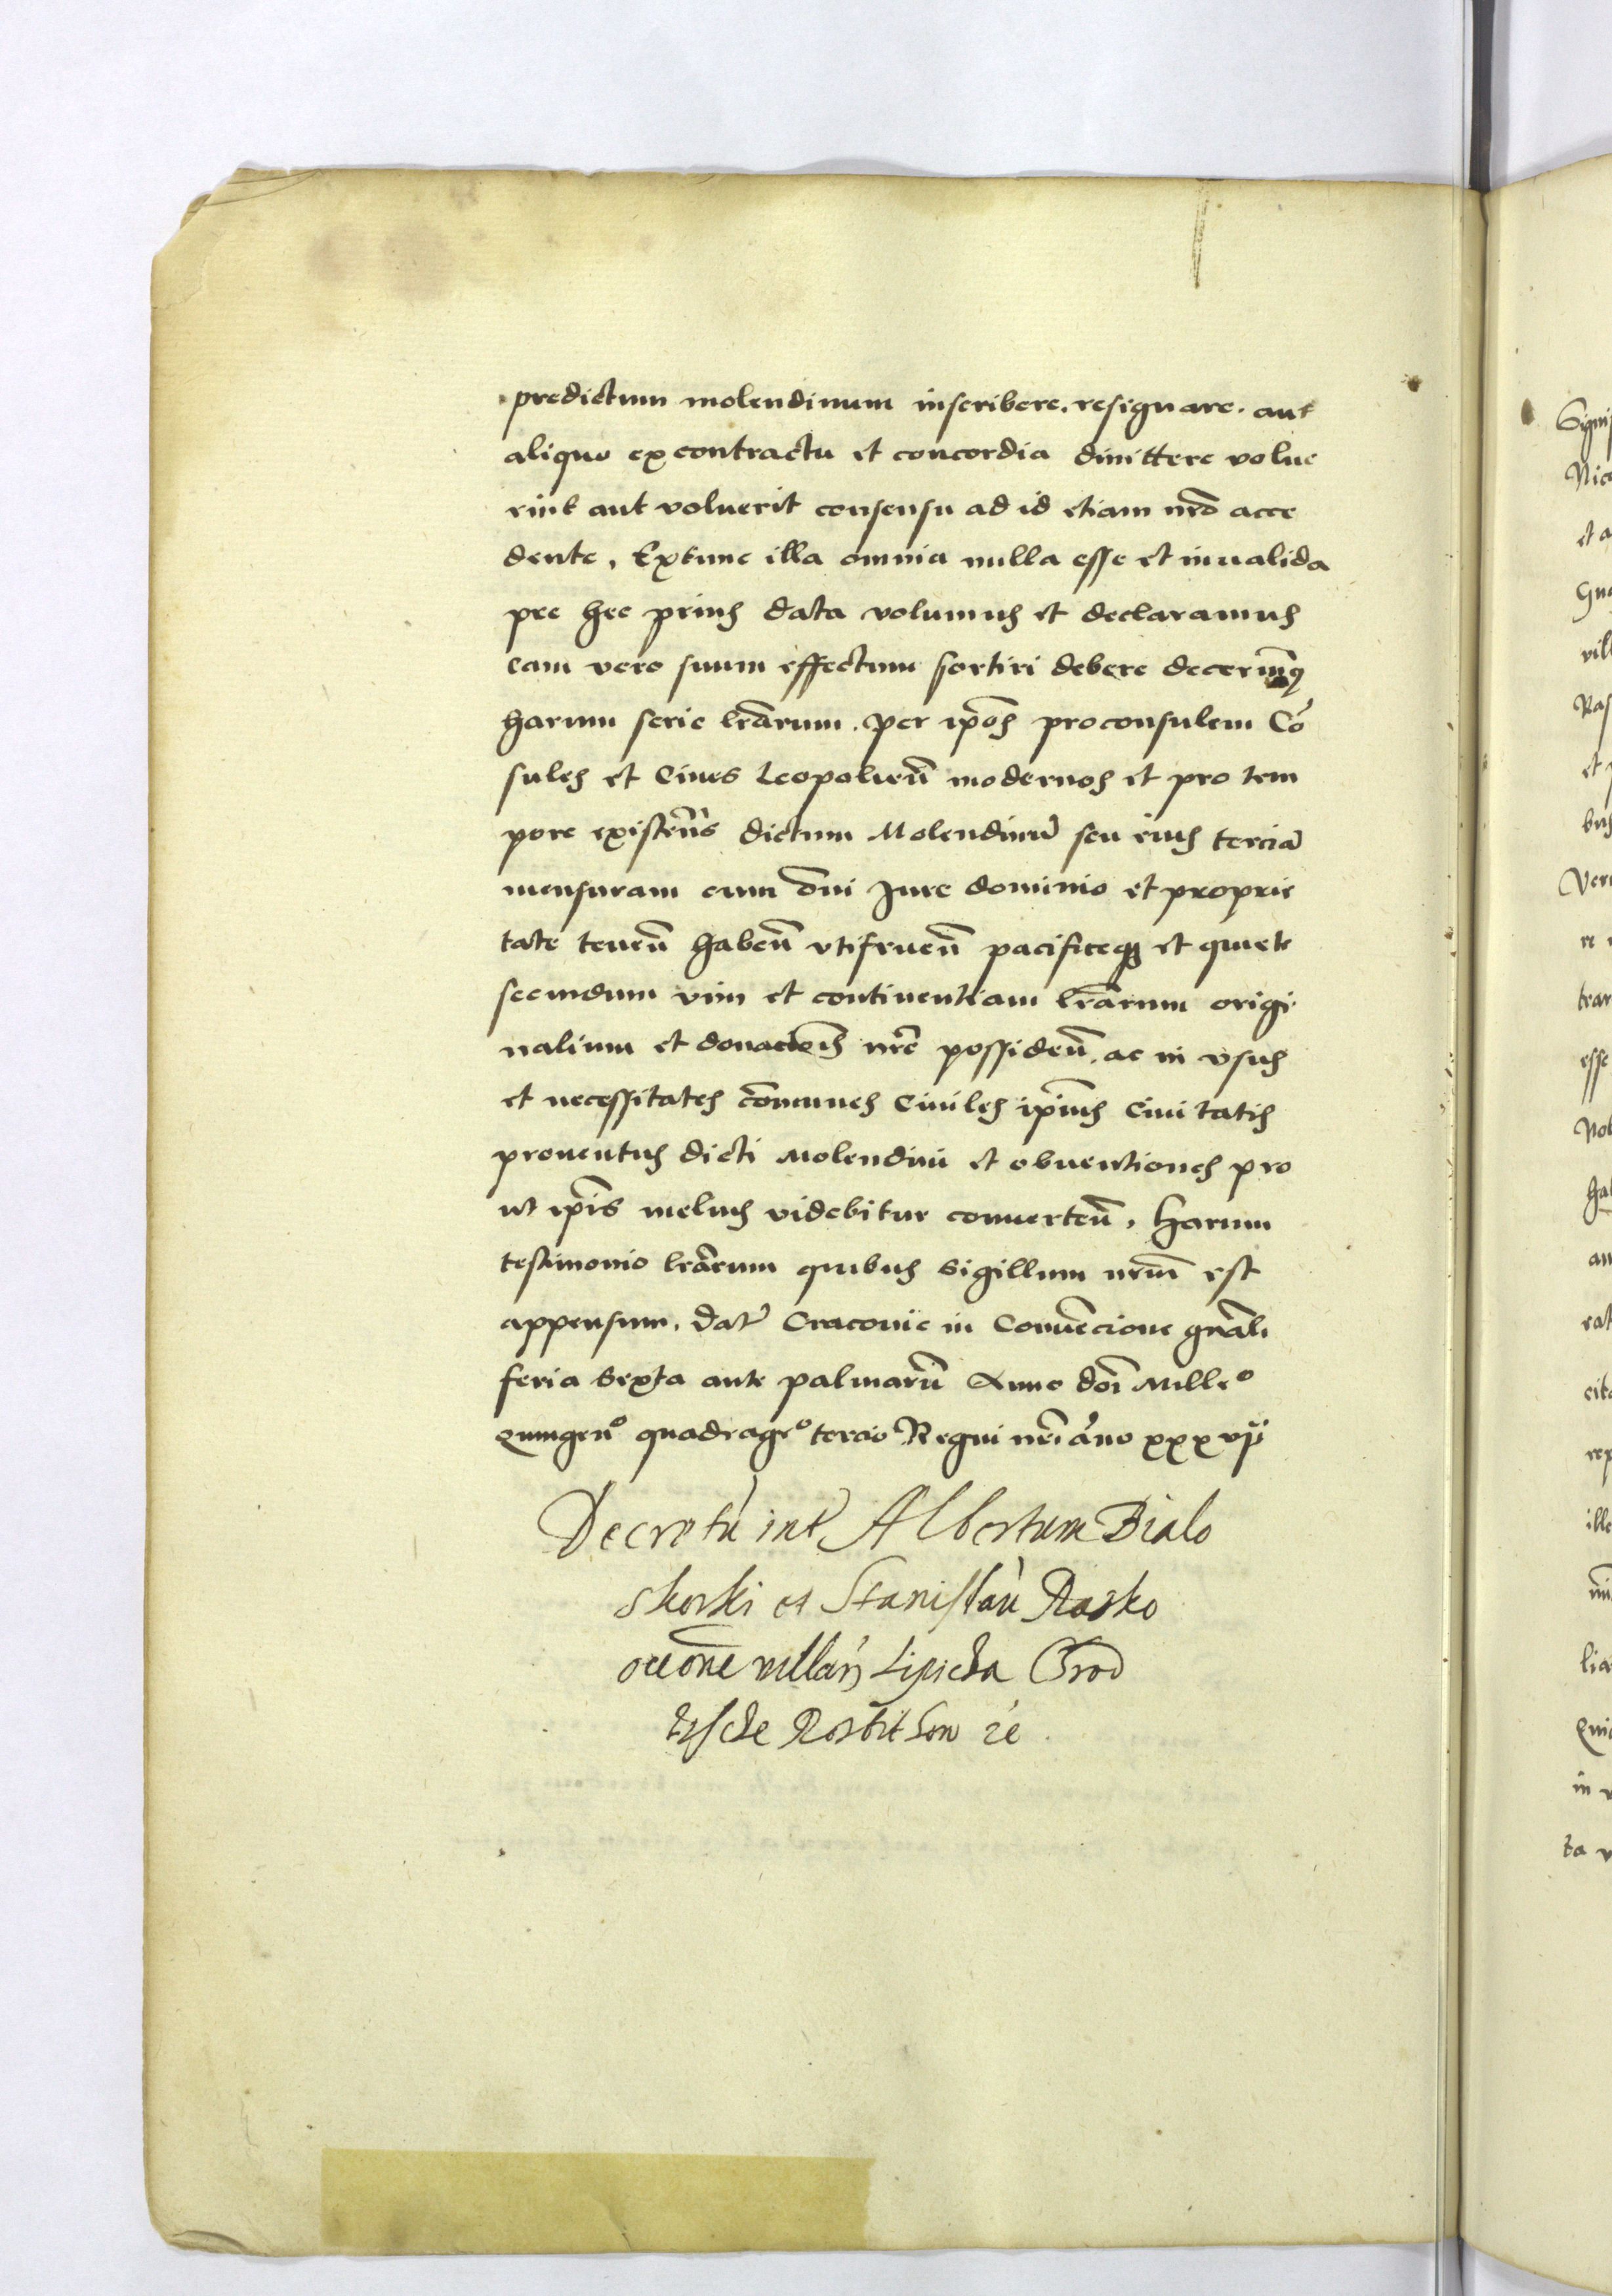 predictum molendinum inscribere. resignare. aut
aliquo ex contractu et concordia dimittere volue
rint aut voluerit consensu ad id etiam nr̃o acce
dente, Extunc illa omnia nulla esse et inualida
pre hec prius data volumus et declaramus
eam vero suum effectum sortiri debere decernim̃q
harum serie lr̃arum. per ip̃os proconsulem Cõ
sules et Ciues Leopolieñ modernos et pro tem
pore existeñs dictum Molendinũ seu eius terciã
mensuram cum om̃i Jure dominio et proprie
tate teneñ habeñ vtifrueñ pacificeq et quiete
secundum vim et continentiam lr̃arum origi
nalium et donacioñis nr̃e possideñ. ac in vsus
et necessitates cõmunes Ciuiles ip̃ius Ciuitatis
prouentus dicti Molendini et obuentiones pro
ut ip̃is melius videbitur conuerteñ, Harum
testimonio lr̃arum quibus Sigillum nr̃um est
appensum. Dat̃ Cracouie in Conuẽcione gñali
feria Sexta ante palmarũ Anno dñi Mill̃eᵒ
Quingeñᵒ quadrageᵒ tercio Regni nr̃i ãno xxxvij
Decretũ int̃ Albertum Bialo
skorski et Stanislaũ Rasko
villar̃